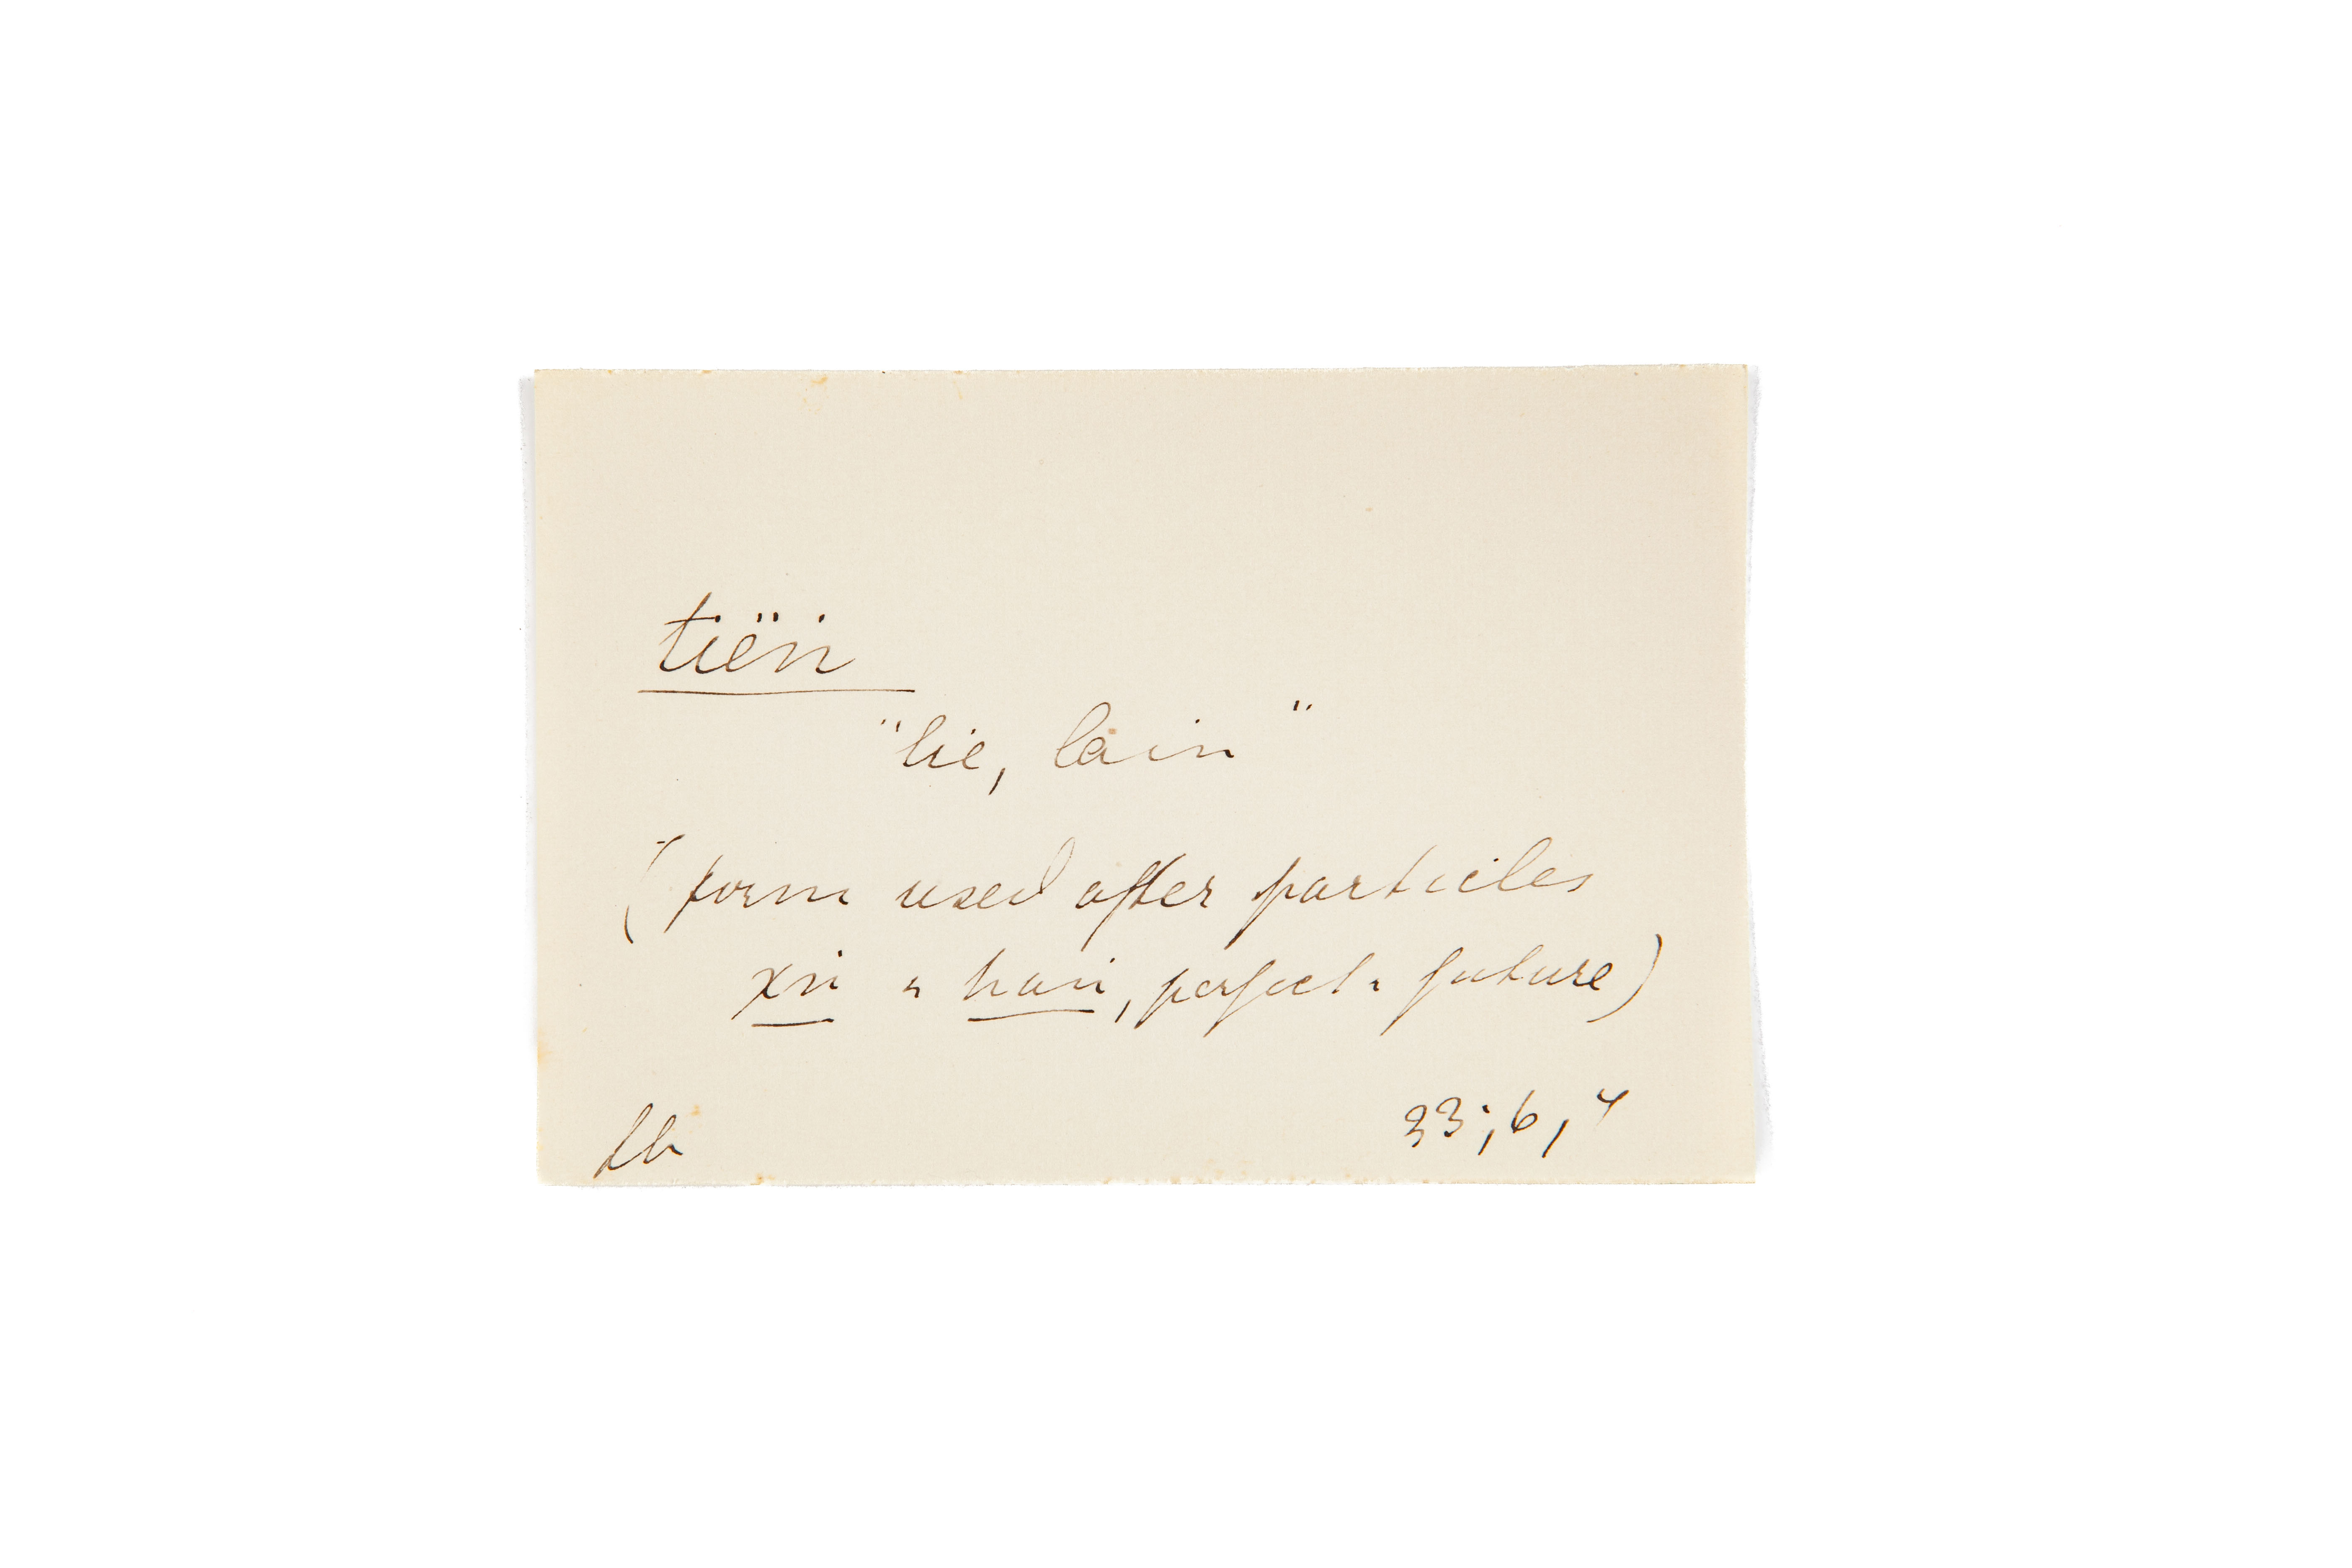 tiëṅ
"lie, lain"
(form used after particles
xṅ & haṅ, perfect & future)
33; 6, 4